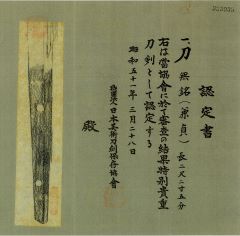 認定書
一、刀 無銘（兼貞） 長二尺二寸五分
右は當協會に於て審査の結果特別貴重
刀剣として認定する
昭和五十一年 三月二十八日
財團法人日本美術刀剣保存協會
殿